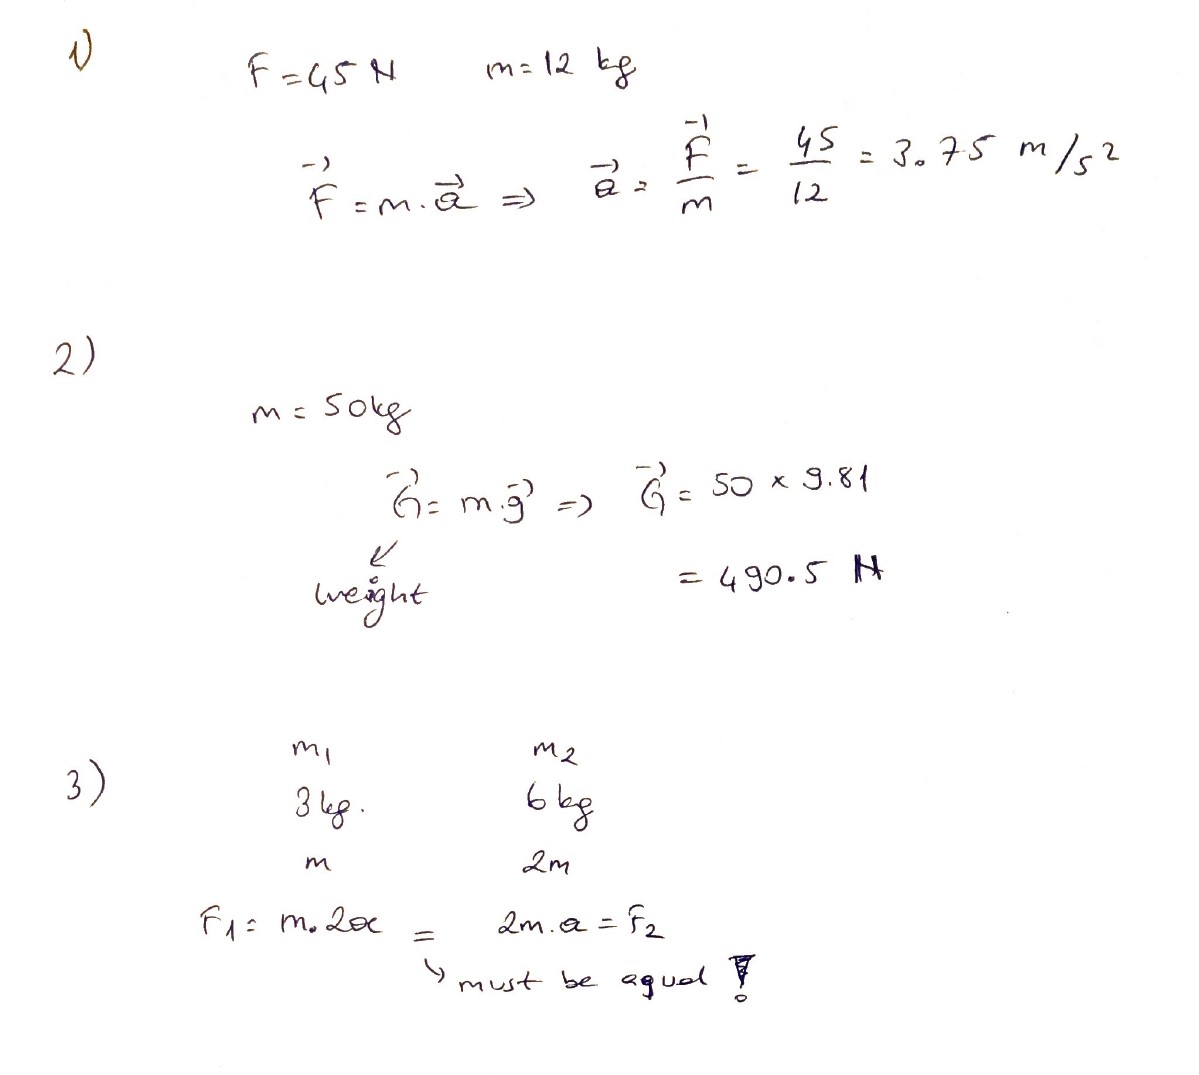 1)
F = 45 N m = 12 kg
F⃗ = m.a⃗ ⇒ a⃗ = F⃗/m = 45/12 = 3.75 m/s²
2)
m = 50kg
G⃗ = m.g⃗ ⇒ G⃗ = 50 × 9.81
= 490.5 N
↙
weight
3)
m₁ m₂
3 kg. 6 kg
m 2m
F₁ = m.2a = 2m.a = F₂
↳ must be equal !